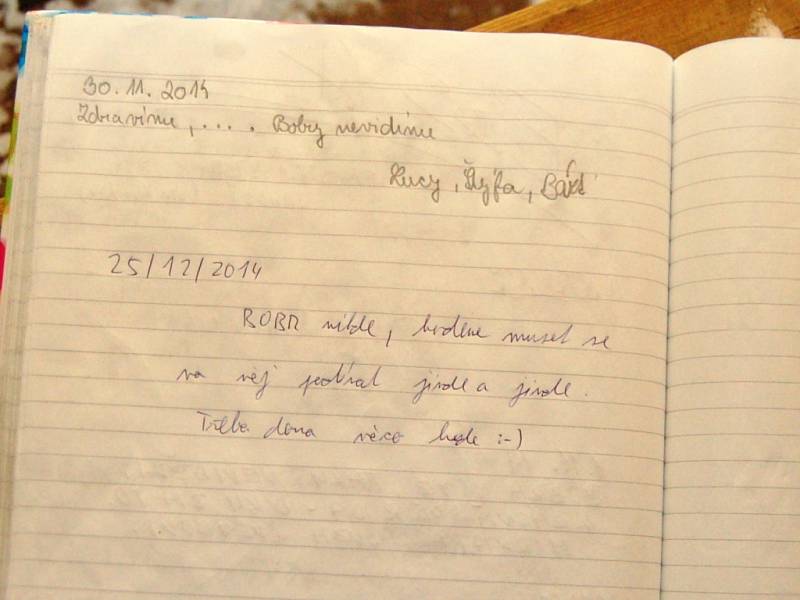 30.11.2014
Zdravíme, .... Bobry nevidíme
Lucy, Štýfa, Bářt
25/12/2014
BOBR nikde, budeme muset se
na něj podívat jinde a jinde.
Třeba doma něco bude :-)